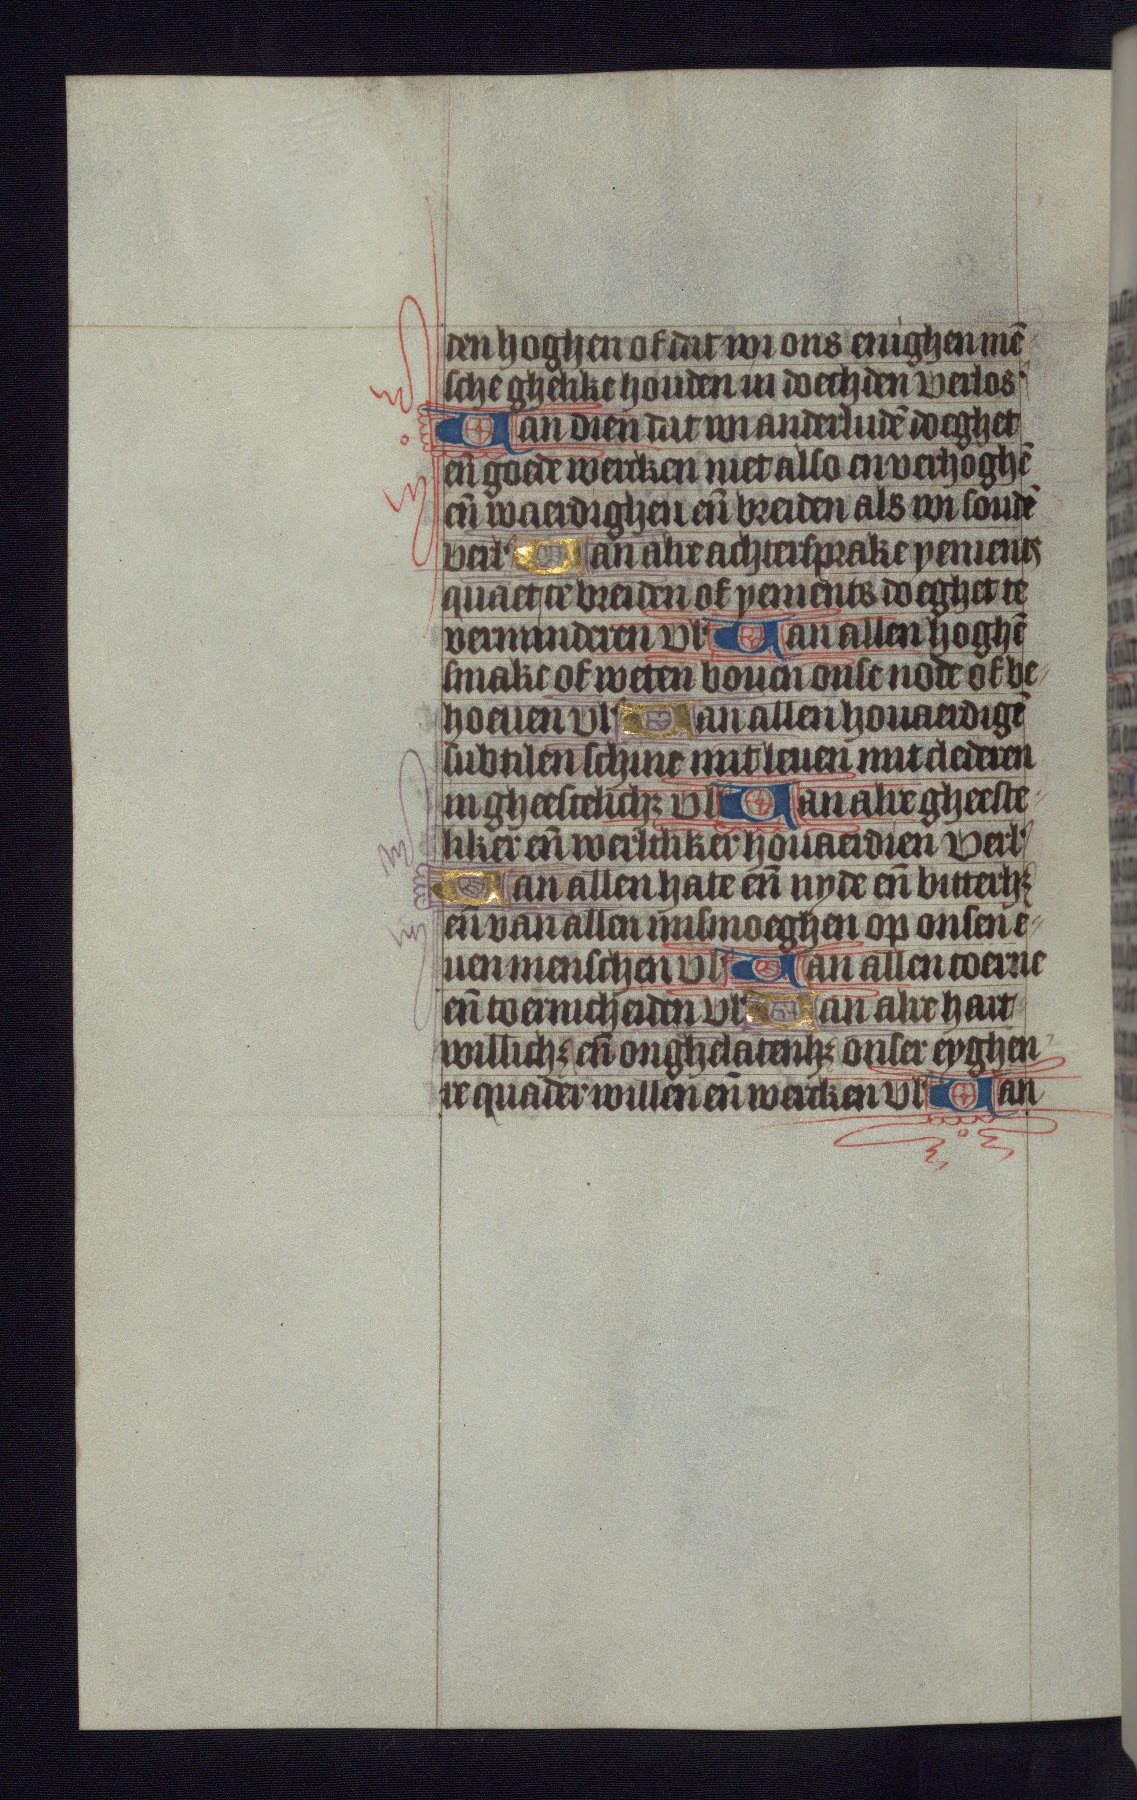 den hoghen of dat wi ons enighen mē
sche ghelike houden in doechden verlos
Van dien dat wi anderludē doeghet
eñ goede wercken niet also en verhoghē
eñ waerdighen eñ breiden als wi soudē
verl Van alre achtersprake yements
quaet te breiden of yements doeghet te
verminderen vl Van allen hoghē
smake of weten bouen onse node of be
hoeuen vl Van allen houaerdigē
subtilen schine mit leuen mit clederen
in gheestelichꝫ vl Van alre gheeste
liker eñ werltliker houaerdien verl
Van allen hate eñ nyde eñ bitterhꝫ
eñ van allen mismoeghen op onsen e
uen menschen vl Van allen toerne
eñ toernicheiden vl Van alre hart
willichꝫ eñ onghelatenhꝫ onser eyghen
re quader willen eñ wercken vl Van